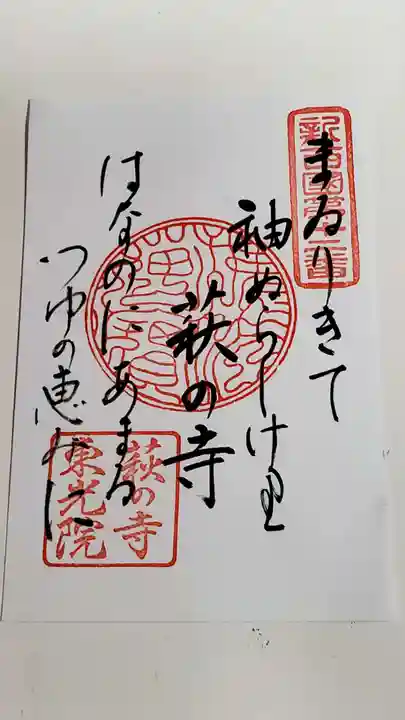 新西國第十二番
まゐりきて
袖ぬらしけり
萩の寺
はなのにあまる
つゆの恵みに
萩の寺
東光院